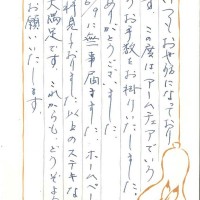 お世話になっており
す。この度はアームチェアでいろ
りお手数をお掛けいたしま
ありがとうございます。
6/9に無事届きました。ホームペー
料見ておりました以上のステキな
大満足です。これからも、どうぞよろ
お願いいたします。